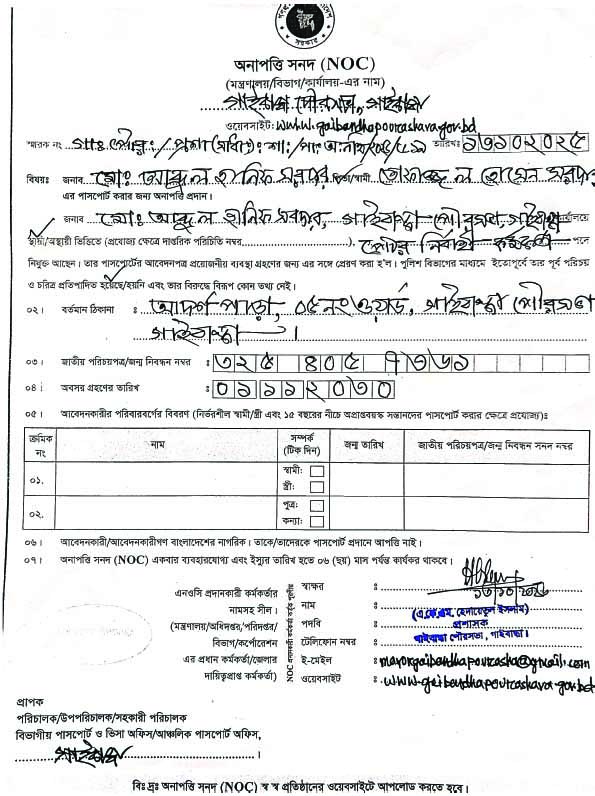 সরকার
অনাপত্তি সনদ (NOC)
(মন্ত্রণালয়/বিভাগ/কার্যালয়-এর নাম)
গাইবান্ধা পৌরসভা, গাইবান্ধা
ওয়েবসাইট: www.gaibandhapourashava.gov.bd
স্মারক নং গাঃপৌরঃ/প্রশা(সাধাঃ): শা:/ তারিখঃ ১৩১০২০২৫
বিষয়: জনাব মোঃ আব্দুল হানিফ সরদার পিতা/স্বামী তোফাজ্জল হোসেন সরদার
এর পাসপোর্ট করার জন্য অনাপত্তি প্রদান।
জনাব মোঃ আব্দুল হানিফ সরদার, গাইবান্ধা পৌরসভা, গাইবান্ধা কার্যালয়ে
স্থায়ী/অস্থায়ী ভিত্তিতে (প্রযোজ্য ক্ষেত্রে দাপ্তরিক পরিচিতি নম্বর ), পৌর নির্বাহী কর্মকর্তা পদে
নিযুক্ত আছেন। তার পাসপোর্টের আবেদনপত্র প্রয়োজনীয় ব্যবস্থা গ্রহণের জন্য এর সঙ্গে প্রেরণ করা হ'ল। পুলিশ বিভাগের মাধ্যমে ইতোপূর্বে তার পূর্ব পরিচয়
ও চরিত্র প্রতিপাদিত হয়েছে/হয়নি এবং তার বিরুদ্ধে বিরূপ কোন তথ্য নেই।
০২। বর্তমান ঠিকানা : আদর্শ পাড়া, ০৫নং ওয়ার্ড, গাইবান্ধা পৌরসভা
গাইবান্ধা ।
০৩। জাতীয় পরিচয়পত্র/জন্ম নিবন্ধন নম্বর : ৩২৫ ৪০৫ ৭৩৬১
০৪। অবসর গ্রহণের তারিখ : ০১১১২০৩০
০৫। আবেদনকারীর পরিবারবর্গের বিবরণ (নির্ভরশীল স্বামী/স্ত্রী এবং ১৫ বছরের নীচে অপ্রাপ্তবয়স্ক সন্তানদের পাসপোর্ট করার ক্ষেত্রে প্রযোজ্য)ঃ
ক্রমিক নং নাম সম্পর্ক (টিক দিন) জন্ম তারিখ জাতীয় পরিচয়পত্র/জন্ম নিবন্ধন সনদ নম্বর
০১. স্বামী:
স্ত্রী:
০২. পুত্র:
কন্যা:
০৬। আবেদনকারী/আবেদনকারীগণ বাংলাদেশের নাগরিক। তাকে/তাদেরকে পাসপোর্ট প্রদানে আপত্তি নাই।
০৭। অনাপত্তি সনদ (NOC) একবার ব্যবহারযোগ্য এবং ইস্যুর তারিখ হতে ০৬ (ছয়) মাস পর্যন্ত কার্যকর থাকবে।
এনওসি প্রদানকারী কর্মকর্তার স্বাক্ষর :
নামসহ সীল। নাম : (এ.কে.এম. হেদায়েতুল ইসলাম)
(মন্ত্রণালয়/অধিদপ্তর/পরিদপ্তর/ পদবি : প্রশাসক
গাইবান্ধা পৌরসভা, গাইবান্ধা।
বিভাগ/কর্পোরেশন টেলিফোন নম্বর :
এর প্রধান কর্মকর্তা/জেলার ই-মেইল : mayorgaibandhapourasha@gmail.com
দায়িত্বপ্রাপ্ত কর্মকর্তা) ওয়েবসাইট : www.gaibandhapourashava.gov.bd
প্রাপক
পরিচালক/উপপরিচালক/সহকারী পরিচালক
বিভাগীয় পাসপোর্ট ও ভিসা অফিস/আঞ্চলিক পাসপোর্ট অফিস,
গাইবান্ধা ।
বিঃ দ্রঃ অনাপত্তি সনদ (NOC) স্ব স্ব প্রতিষ্ঠানের ওয়েবসাইটে আপলোড করতে হবে।